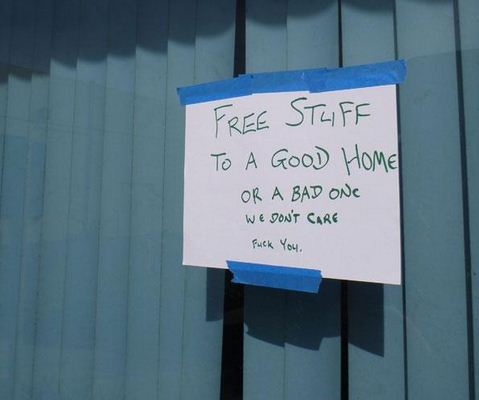 FREE STUFF
TO A GOOD HOME
OR A BAD ONE
WE DON'T CARE
FUCK YOU.